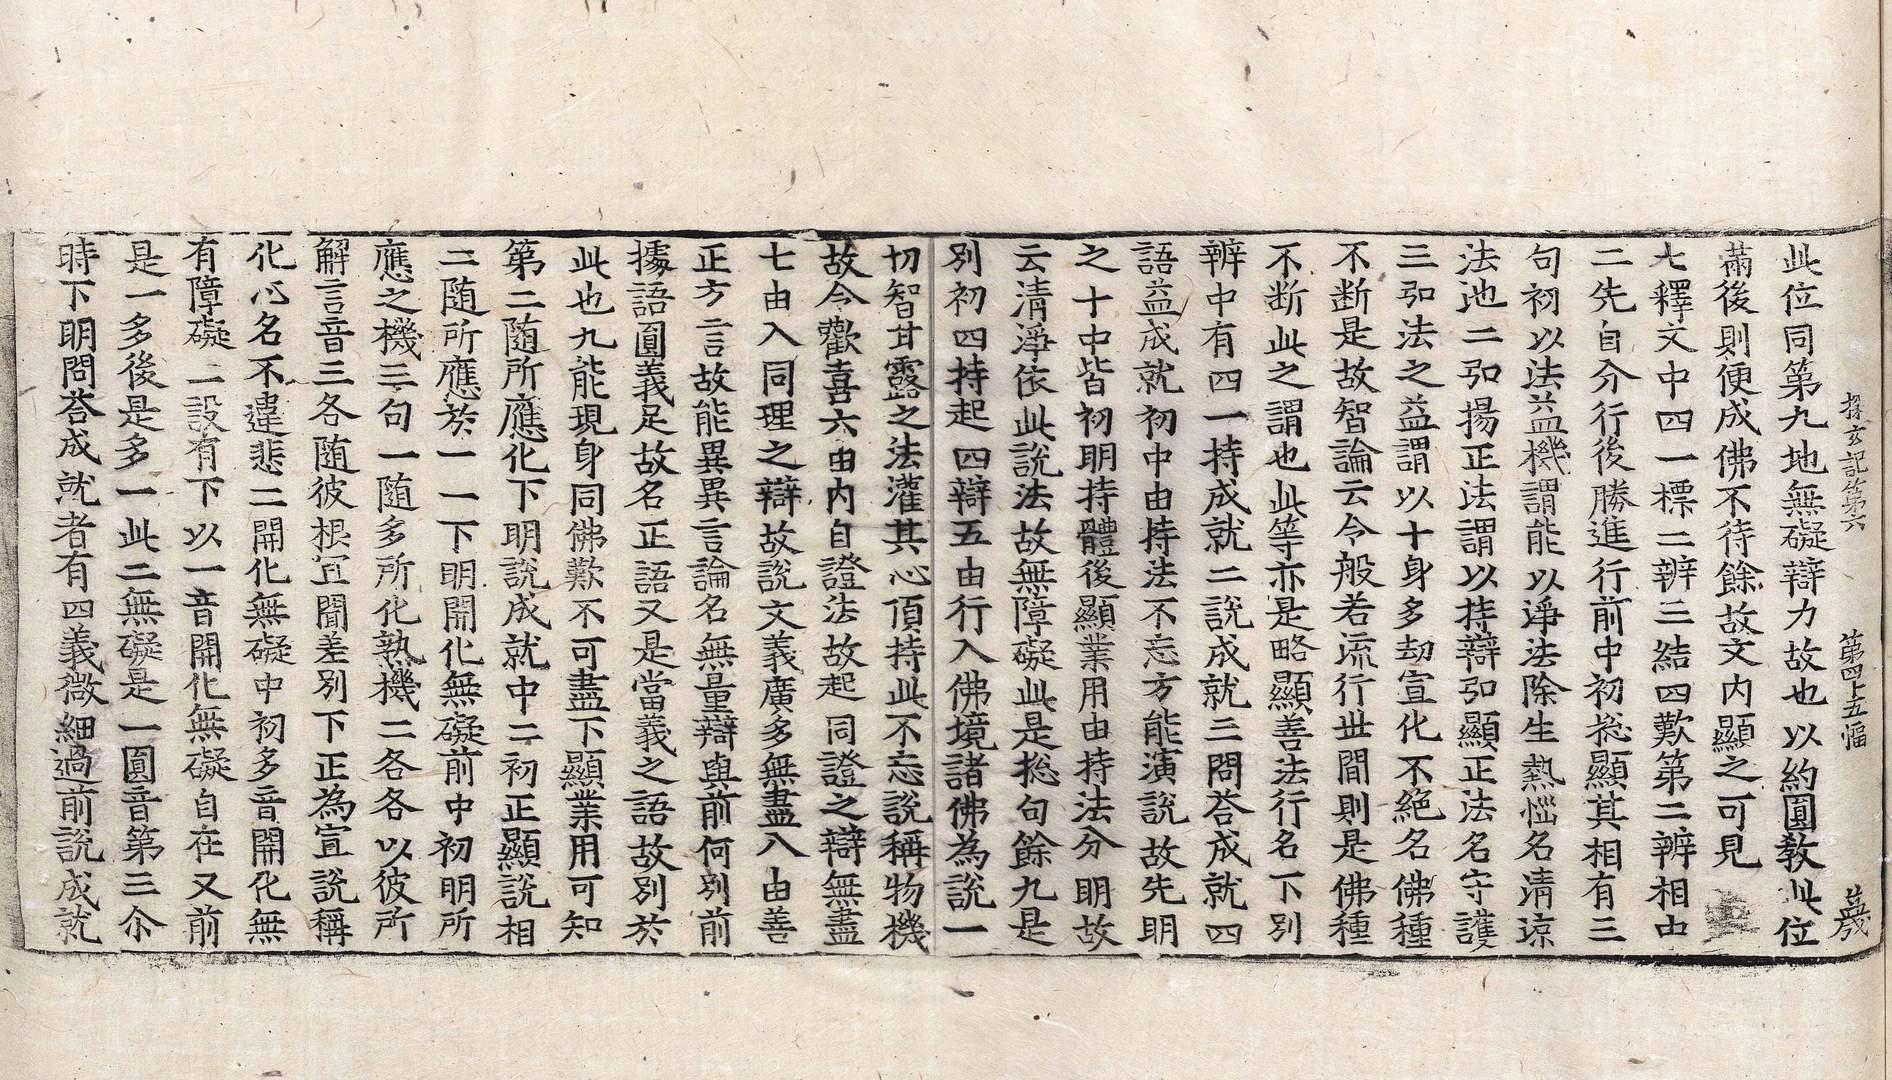 探玄記第六 第四十五幅 歲
此位同第九地無礙辯力故也以約圓教此位
滿後則便成佛不待餘故文內顯之可見
七釋文中四一標二辨三結四歎第二辨相由
二先自分行後勝進行前中初惣顯其相有三
句初以法益機謂能以淨法除生熱惱名清涼
法池二弘揚正法謂以持辯弘顯正法名守護
三弘法之益謂以十身多劫宣化不絕名佛種
不斷是故智論云令般若流行世間則是佛種
不斷此之謂也此等亦是略顯善法行名下別
辨中有四一持成就二說成就三問荅成就四
語益成就初中由持法不忘方能演說故先明
之十中皆初明持體後顯業用由持法分明故
云清淨依此說法故無障礙此是惣句餘九是
別初四持起四辯五由行入佛境諸佛為說一
切智甘露之法灌其心頂持此不忘說稱物機
故令歡喜六由內自證法故起同證之辯無盡
七由入同理之辯故說文義廣多無盡八由善
正方言故能異異言論名無量辯與前何別前
據語圓義足故名正語又是當義之語故別於
此也九能現身同佛歎不可盡下顯業用可知
第二隨所應化下明說成就中二初正顯說相
二隨所應於一一下明開化無礙前中初明所
應之機三句一隨多所化熟機二各各以彼所
解言音三各隨彼根宜聞差別下正為宣說稱
化心名不違悲二開化無礙中初多音開化無
有障礙二設有下以一音開化無礙自在又前
是一多後是多一此二無礙是一圓音第三尒
時下明問荅成就者有四義微細過前說成就